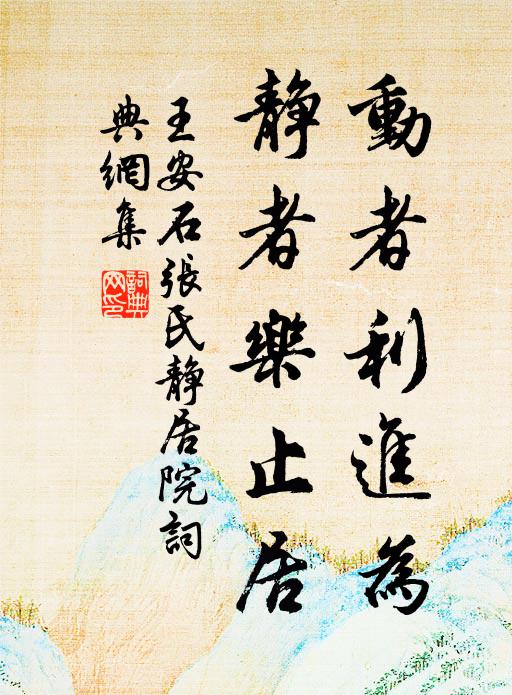 動者利進為
静者樂止居
王安石張氏静居院詞
典網集
詞典網印